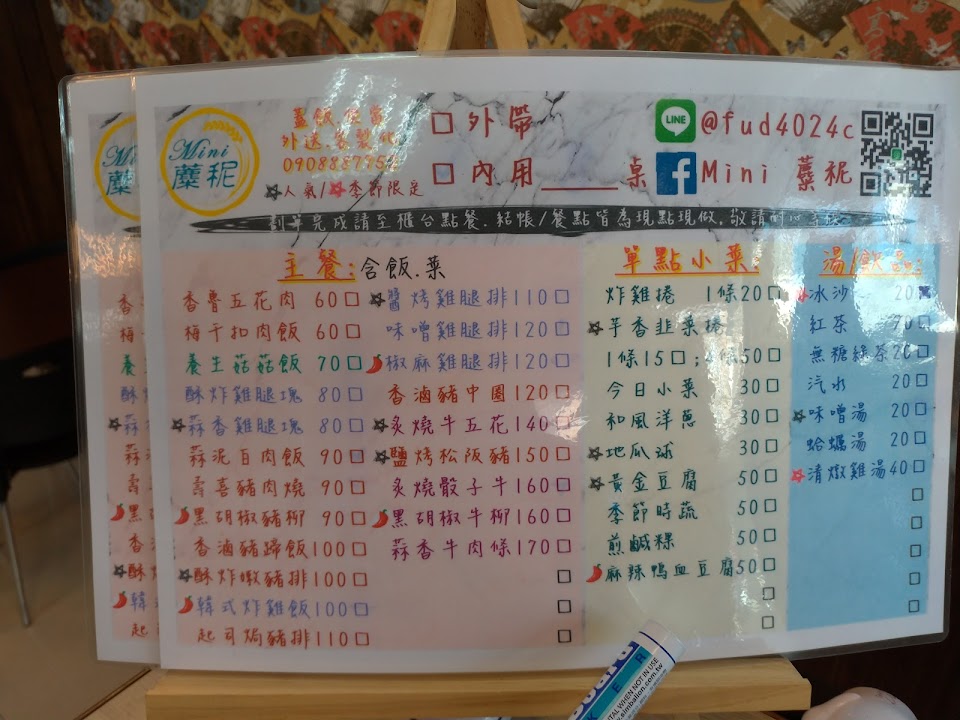 Mini
蘪秜
蓋飯.便當
外送.客製化
☆人氣/☆季節限定
□外帶
□內用_____桌
LINE
@fud4024c
f Mini 蘪秜
劃單完成請至櫃台點餐.結帳/餐點皆為現點現做.敬請耐心
主餐:含飯.菜
香魯五花肉 60□
梅干扣肉飯 60□
養生菇菇飯 70□
酥炸雞腿塊 80□
☆蒜香雞腿塊 80□
蒜泥白肉飯 90□
壽喜豬肉燒 90□
黑胡椒豬柳 90□
香滷豬蹄飯100□
☆酥炸嫩豬排100□
韓式炸雞飯100□
起司焗豬排110□
☆醬烤雞腿排110□
味噌雞腿排120□
椒麻雞腿排120□
香滷豬中圈120□
☆炙燒牛五花140□
☆鹽烤松阪豬150□
炙燒骰子牛160□
黑胡椒牛柳160□
蒜香牛肉條170□
單點小菜:
炸雞捲 1條20□
☆芋香韭菜捲
1條15□;4條50□
今日小菜 30□
和風洋蔥 30□
☆地瓜球 30□
☆黃金豆腐 50□
季節時蔬 50□
煎鹹粿 50□
麻辣鴨血豆腐50□
湯/飲品:
☆冰沙 20
紅茶 20□
無糖綠茶20□
汽水 20□
☆味噌湯 20□
蛤蠣湯 20□
☆清燉雞湯40□
TAL WHEN NOT IN USE
simbalion.com.tw